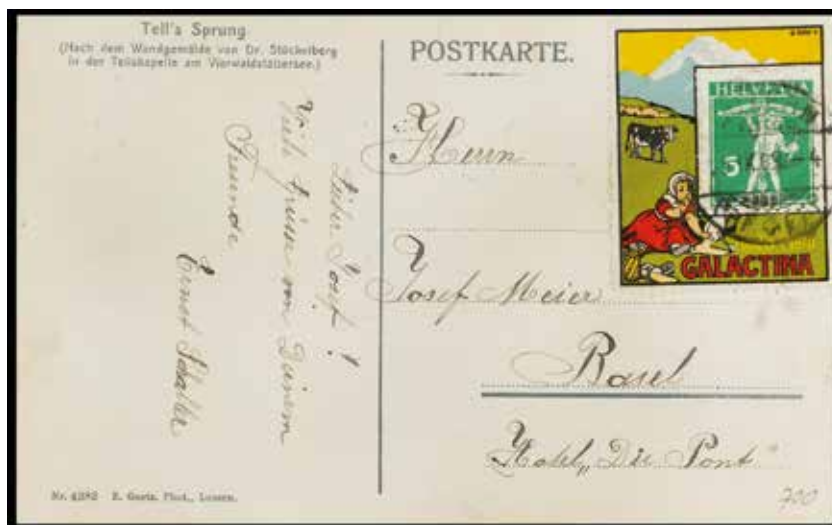 Tell's Sprung
(Nach dem Wandgemälde von Dr. Stückelberg
in der Tellskapelle am Vierwaldstättersee.)
Lieber Josef!
Viele Grüsse von Deinem
Freunde
Ernst
Nr. 4282 E. Goetz, Phot., Luzern.
POSTKARTE.
HELVETIA
5
GALACTINA
Herrn
Josef Meier
Basel
Hotel „Du Pont"
700